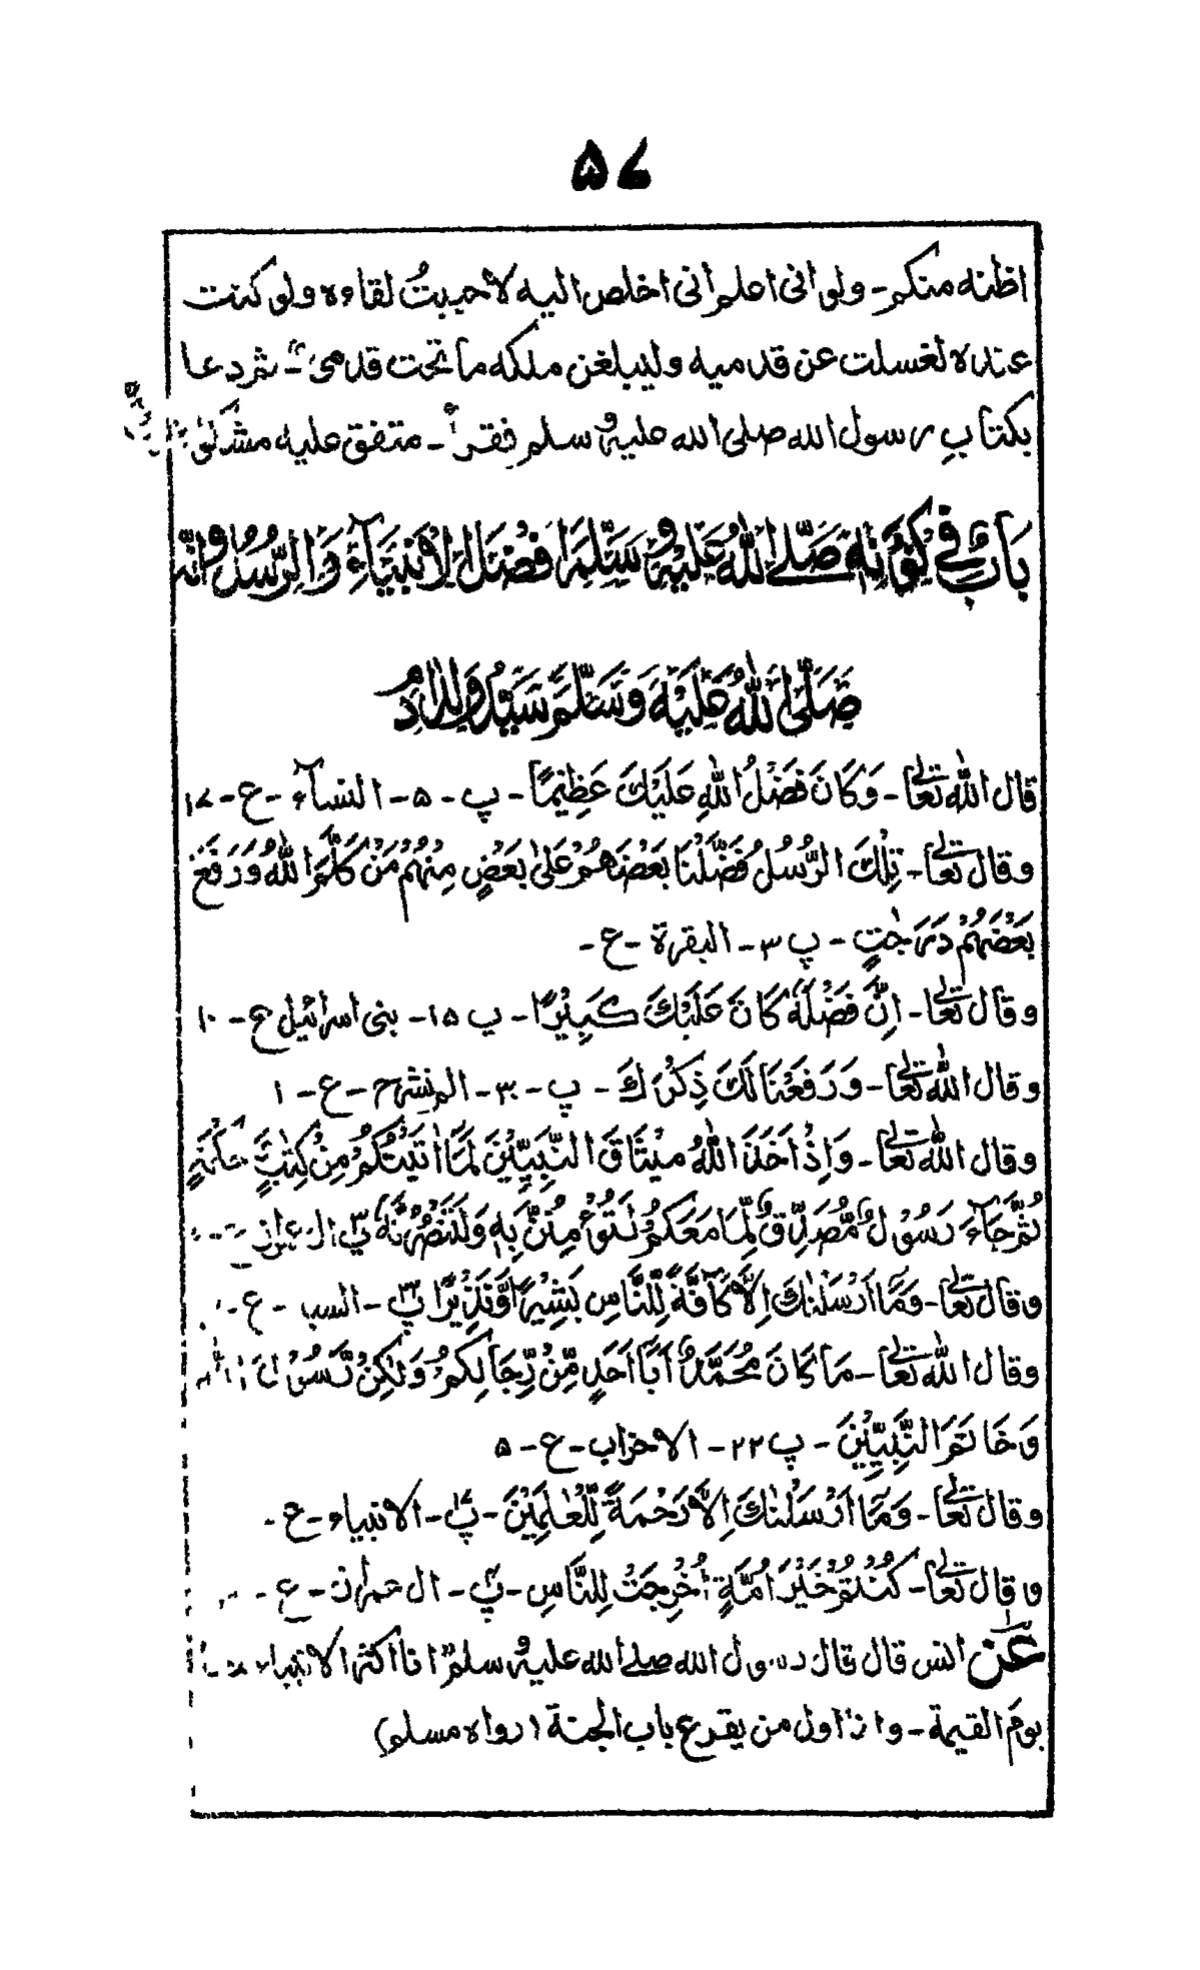 ۵۷
اظنه منكم - ولو انى اعلم انى اخلص اليه لاحببتُ لقاءه ولو كنت
عنده لغسلت عن قدميه وليبلغن ملكه ما تحت قدمى - ثم دعا
بكتابِ رسول الله صلى الله عليه وسلم فقرأ - متفق عليه مشكوٰة
بَابٌ فِي كَوْنِهٖ صَلَّى اللهُ عَلَيْهِ وَسَلَّمَ اَفْضَلَ الْاَنْبِيَآءِ وَالرُّسُلِ وَاَنَّهٗ
صَلَّى اللهُ عَلَيْهِ وَسَلَّمَ سَيِّدُ وُلْدِ اٰدَمَ
قال الله تعالٰى - وَكَانَ فَضْلُ اللهِ عَلَيْكَ عَظِيْمًا - پ - ۵ - النسآء - ع - ۱۷
وقال تعالٰى - تِلْكَ الرُّسُلُ فَضَّلْنَا بَعْضَهُمْ عَلٰى بَعْضٍ مِنْهُمْ مَنْ كَلَّمَ اللهُ وَرَفَعَ
بَعْضَهُمْ دَرَجٰتٍ - پ ۳ - البقرة - ع -
وقال تعالٰى - اِنَّ فَضْلَهٗ كَانَ عَلَيْكَ كَبِيْرًا - پ ۱۵ - بنى اسرائيل ع - ۱۰
وقال الله تعالٰى - وَرَفَعْنَا لَكَ ذِكْرَكَ - پ - ۳۰ - الم نشرح - ع - ۱
وقال الله تعالٰى - وَاِذْ اَخَذَ اللهُ مِيْثَاقَ النَّبِيِّيْنَ لَمَا اٰتَيْتُكُمْ مِنْ كِتٰبٍ
ثُمَّ جَآءَ رَسُوْلٌ مُّصَدِّقٌ لِّمَا مَعَكُمْ لَتُؤْمِنُنَّ بِهٖ وَلَتَنْصُرُنَّهٗ پ۳ ال عمران
وقال تعالٰى - وَمَا اَرْسَلْنٰكَ اِلَّا كَآفَّةً لِّلنَّاسِ بَشِيْرًا وَّنَذِيْرًا - السبا - ع -
وقال الله تعالٰى - مَا كَانَ مُحَمَّدٌ اَبَا اَحَدٍ مِّنْ رِّجَالِكُمْ وَلٰكِنْ رَّسُوْلَ الله
وَخَاتَمَ النَّبِيّٖنَ - پ ۲۲ - الاحزاب - ع - ۵
وقال تعالٰى - وَمَا اَرْسَلْنٰكَ اِلَّا رَحْمَةً لِّلْعٰلَمِيْنَ - پ۱۷ - الانبياء - ع -
وقال تعالٰى - كُنْتُمْ خَيْرَ اُمَّةٍ اُخْرِجَتْ لِلنَّاسِ - پ۴ - ال عمران - ع -
عَنْ انس قال قال رسول الله صلے الله عليه وسلم انا اكثر الانبياء
يومَ القيمة - وانا اول من يقرع باب الجنة (رواه مسلم)